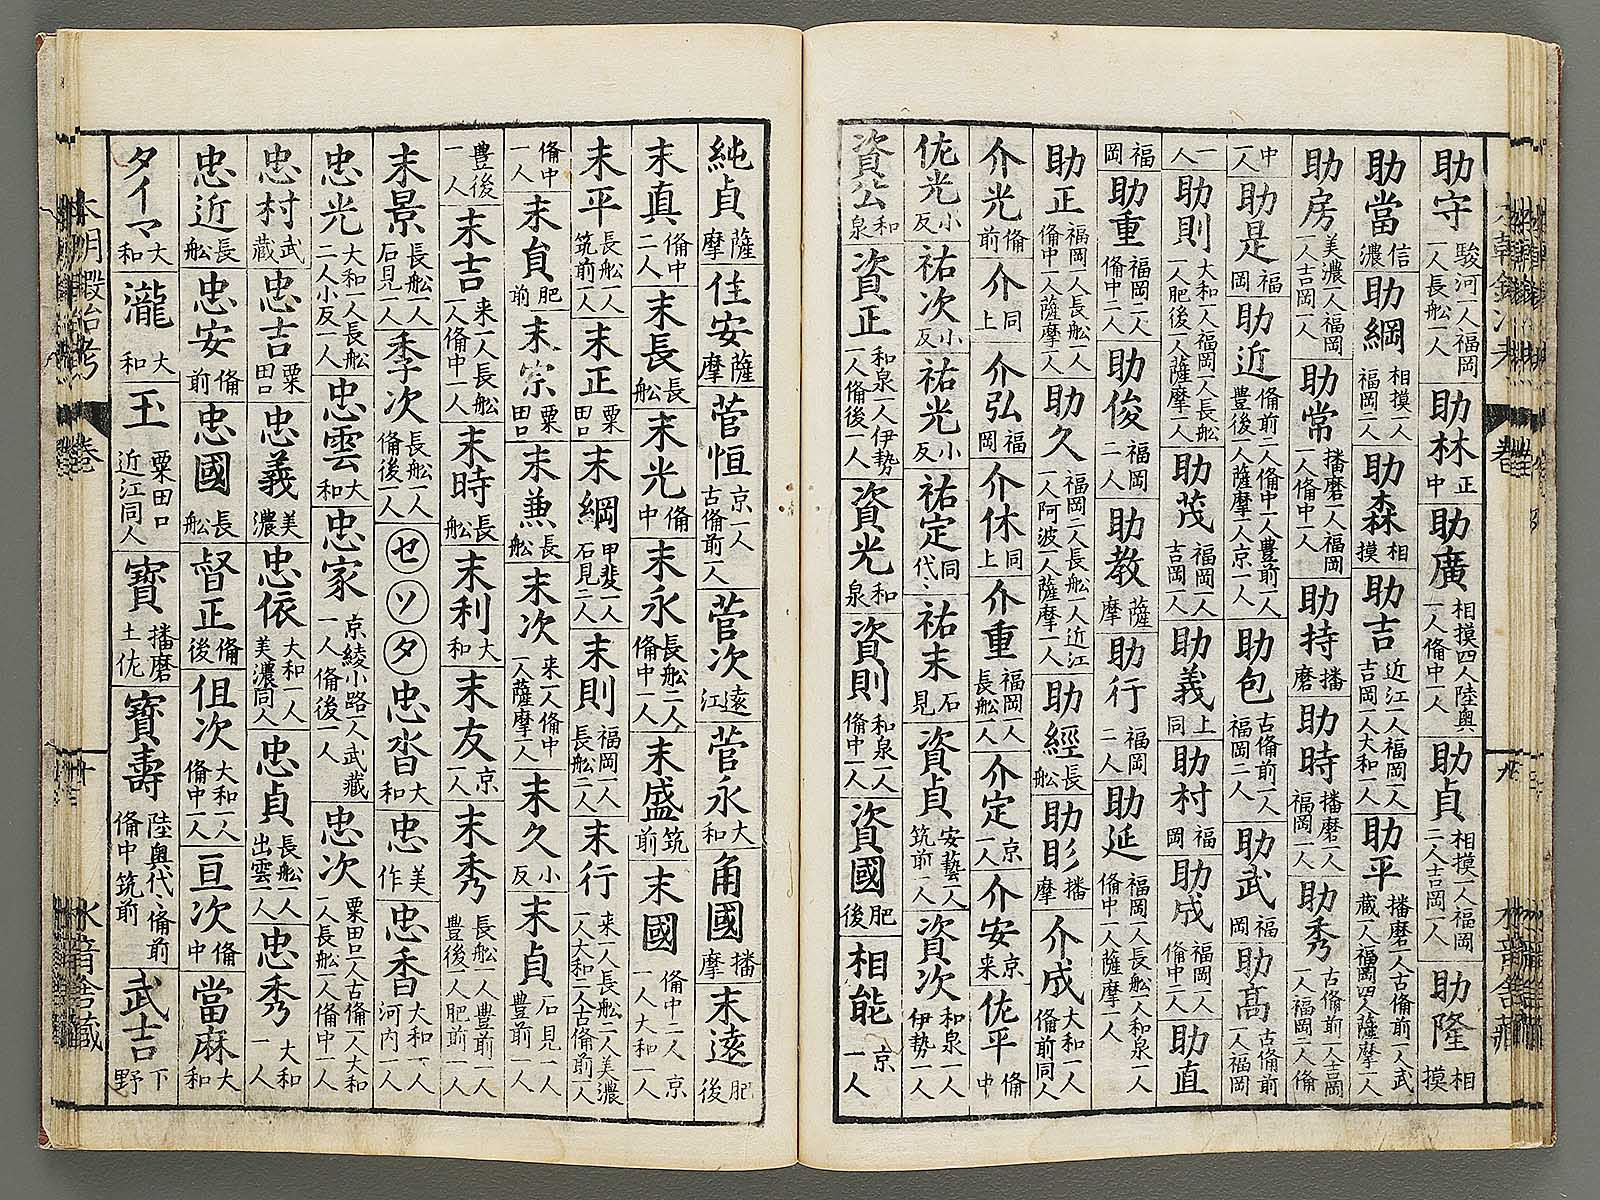 助守 駿河一人福岡一人長舩一人 助林 正中 助廣 相摸四人陸奥一人備中一人 助貞 相摸一人福岡二人吉岡一人 助隆 相摸
助當 信濃 助綱 相摸一人福岡一人 助森 相摸 助吉 近江一人福岡一人吉岡一人大和一人 助平 播磨一人古備前一人武藏一人福岡四人薩摩一人
助房 美濃一人福岡一人吉岡一人 助常 播磨一人福岡一人備中一人 助持 播磨 助時 播磨一人福岡一人 助秀 古備前一人吉岡一人福岡二人備
中一人 助是 福岡 助近 備前二人備中一人豊前一人豊後一人薩摩一人京一人 助包 古備前一人福岡二人 助武 福岡 助高 古備前一人福岡
一人 助則 大和一人福岡一人長舩一人肥後一人薩摩一人 助茂 福岡一人吉岡一人 助義 上同 助村 福岡 助成 福岡一人備中一人 助直
福岡 助重 福岡一人備中二人 助俊 福岡二人 助教 薩摩 助行 福岡二人 助延 福岡一人長舩一人和泉一人備中一人薩摩一人
助正 福岡一人長舩一人備中一人薩摩一人 助久 福岡二人長舩一人近江一人阿波一人薩摩一人 助經 長舩 助 播摩 介成 大和一人備前同人
介光 備前 介 同上 介弘 福岡 介休 同上 介重 福岡一人長舩一人 介定 京一人 介安 京来 佐平 備中
佐光 小反 祐次 小反 祐光 小反 祐定 同代〻 祐末 石見 資貞 安藝一人筑前一人 資次 和泉一人伊勢一人
資公 和泉 資正 和泉一人伊勢一人備後一人 資光 和泉 資則 和泉一人備中一人 資國 肥後 相能 京一人
純貞 薩摩 住安 薩摩 菅恒 京一人古備前一人 菅次 遠江 菅永 大和 角國 播摩 末遠 肥後
末真 備中二人 末長 長舩 末光 備中 末永 長舩二人備中一人 末盛 筑前 末國 備中二人京一人大和一人
末平 長舩一人筑前一人 末正 粟田口 末綱 甲斐一人石見二人 末則 福岡一人長舩一人 末行 来一人長舩二人美濃一人大和二人古備前一人
備中一人 末貟 肥前 末宗 粟田口 末兼 長舩 末次 来一人備中一人薩摩一人 末久 小反 末貞 石見一人豊前一人
豊後一人 末吉 来一人長舩一人備中一人 末時 長舩 末利 大和 末友 京一人 末秀 長舩一人豊前一人豊後一人肥前一人
末景 長舩一人石見一人 季次 長舩一人備後一人 セ ソ タ 忠沓 大和 忠 美作 忠香 大和一人河内一人
忠光 大和一人長舩二人小反一人 忠雲 大和 忠家 京綾小路一人武藏一人備後一人 忠次 粟田口一人古備一人大和一人長舩一人備中一人
忠村 武藏 忠吉 粟田口 忠義 美濃 忠依 大和一人美濃同人 忠貞 長舩一人出雲一人 忠秀 大和一人
忠近 長舩 忠安 備前 忠國 長舩 督正 備後 伹次 大和一人備中一人 亘次 備中 當麻 大和
タイマ 大和 瀧 大和 玉 粟田口近江同人 寳 播磨土佐 寳壽 陸奥代〻備前備中筑前 武吉 下野
本朝鍛冶考 巻 十 水音舎藏